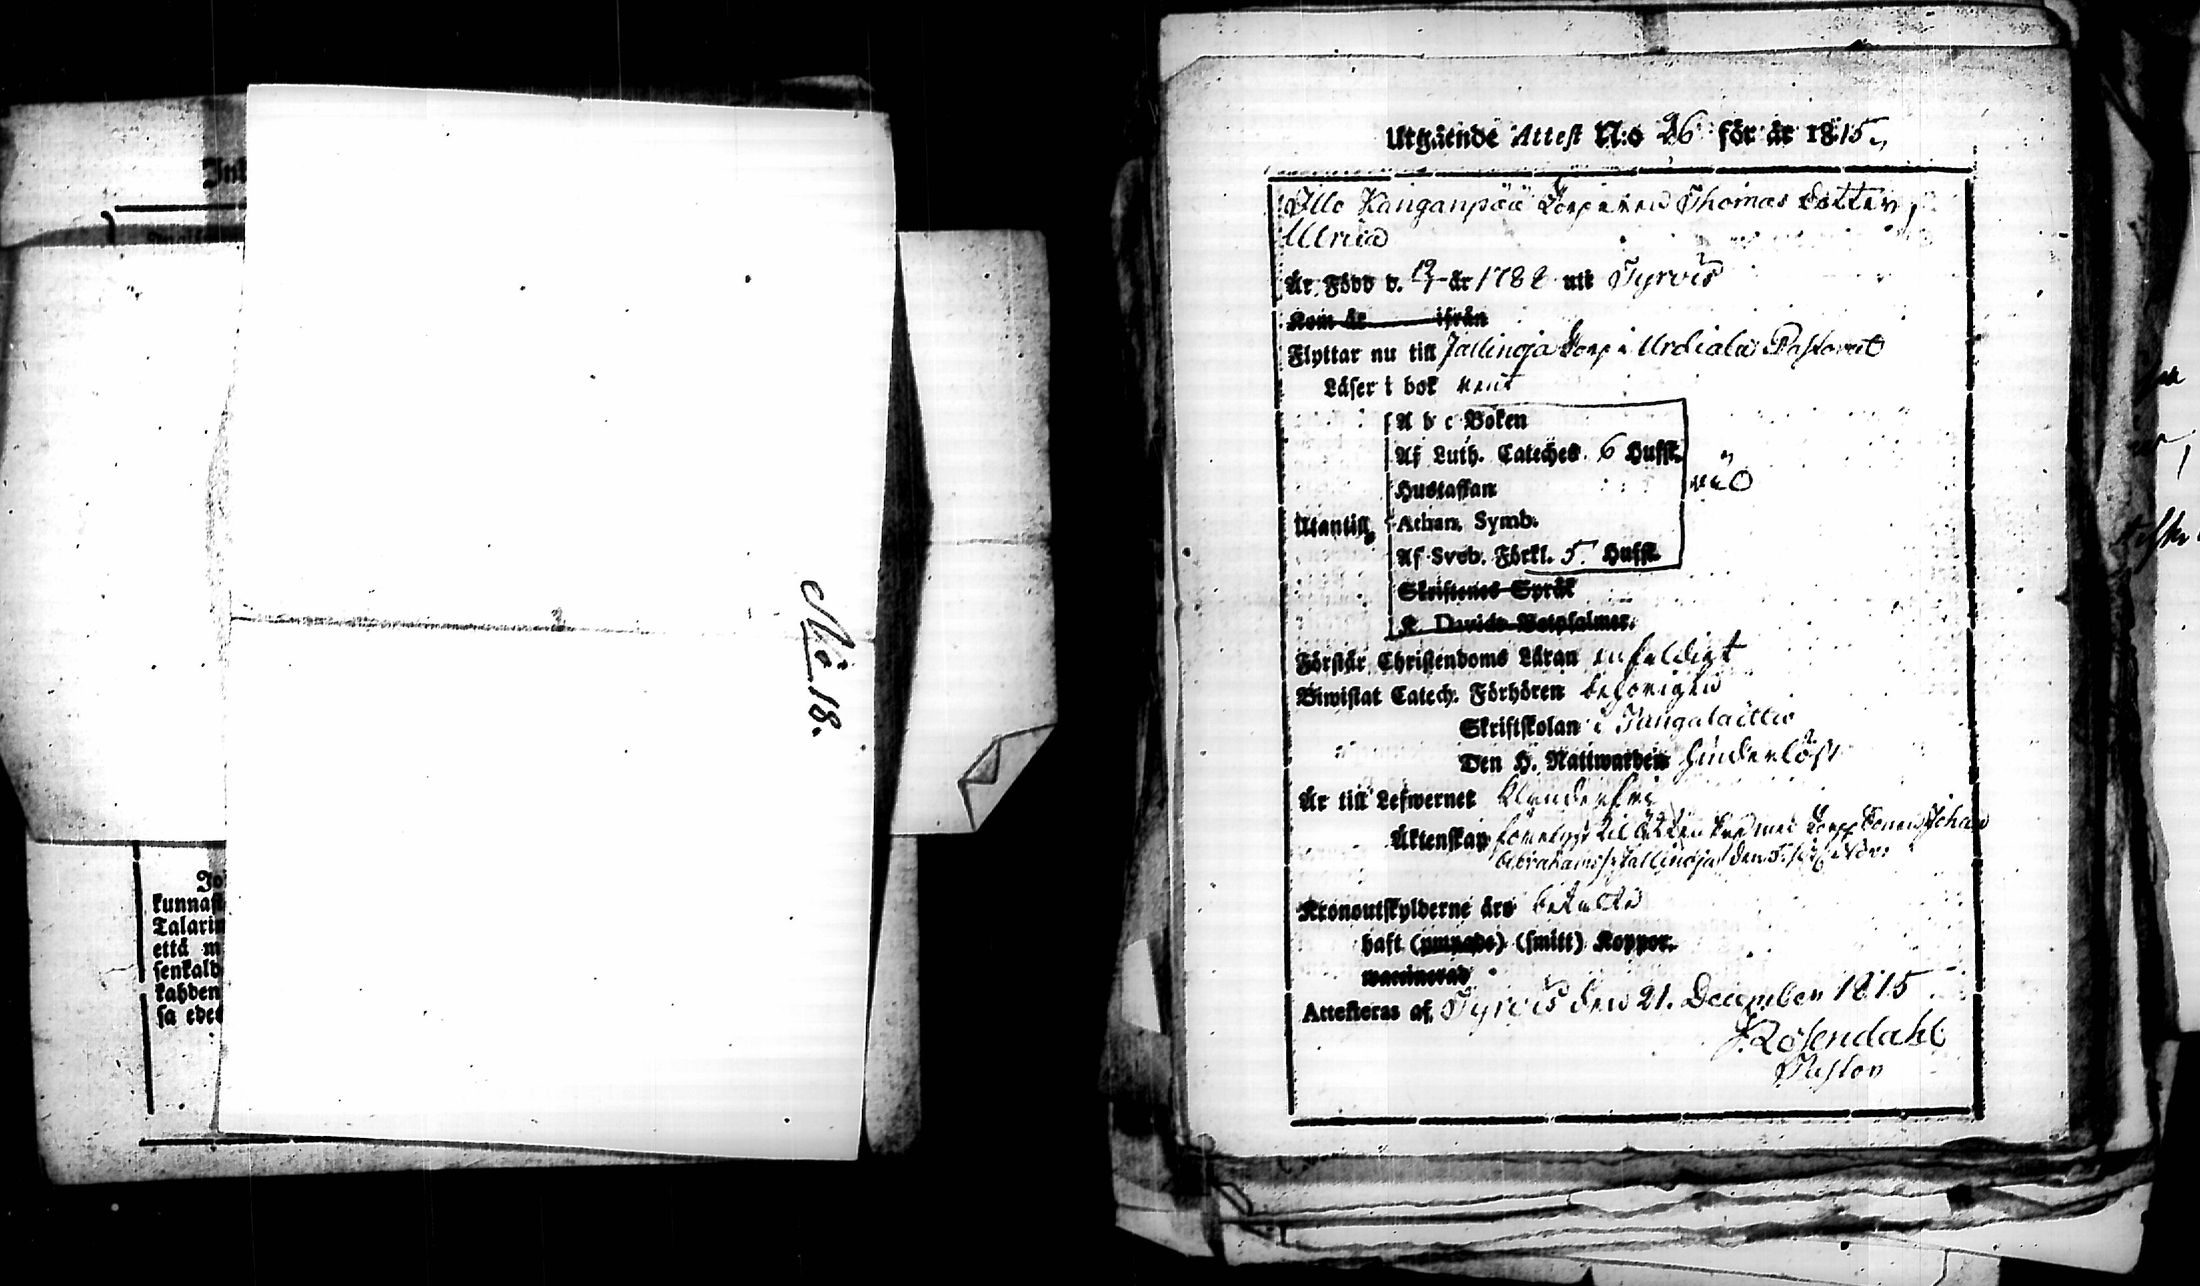 No 18.
Jo
kunnast
Talarin
että m
senkald
kahden
sa edes
Utgående Attest N:o 26 för år 1815,
Illo Kanganpää Torparen Thomas dotter,
Ulrica
Är Född d. 12/1 år 1788 uti Tyrvis
Kom år ifrån
Flyttar nu till Jallinoja Torp i Urdiala Pastorat
Läser i bok rent
A b c Boken
Af Luth. Cateches. 6 Hufst.
Hustaflan
Utantill, Athan. Symb.
Af Sveb. Förkl. 5. Hufst.
Skriftenes Språk
K. Davids Botpsalmer.
Förstår Christendoms Läran enfaldigt
Biwistat Catech. Förhören behörigen
Skriftskolan i
Den H. Nattwarden hinderlöst
Är till Lefwernet Klanderfri
Äktenskap Johan
Abrahams
Kronoutskylderne äro betalte
haft (ympade) (smitt) Koppor.
waccinerad
Attesteras af Tyrvis den 21. December 1815
J. Rosendahl
Pastor